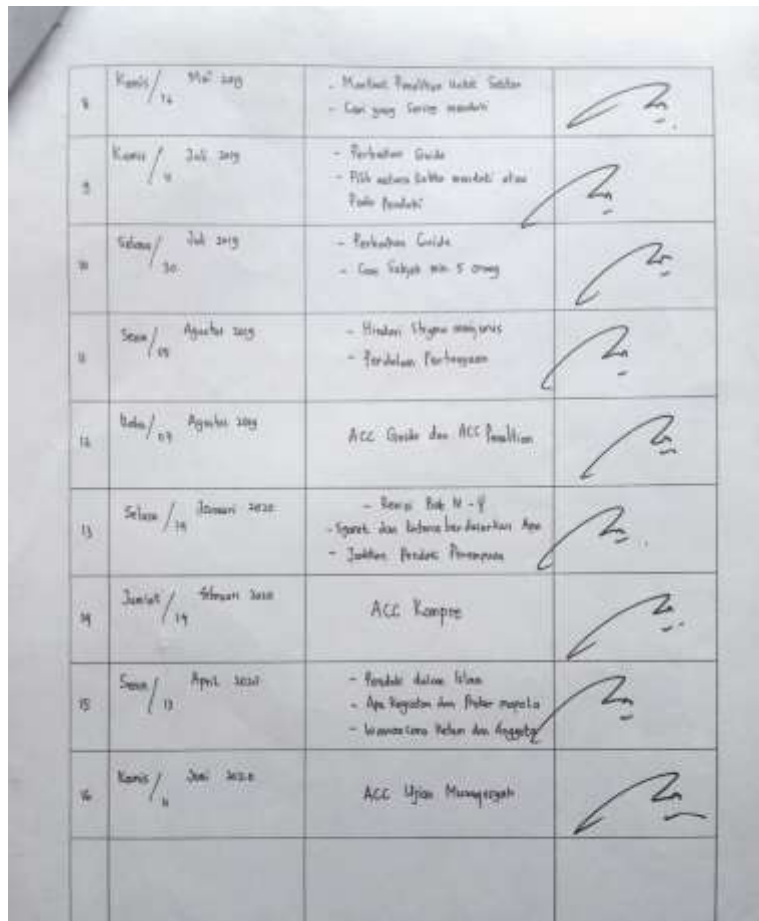 8
Kamis / 16 Mei 2019
- Manfaat Penelitian Untuk
- Cari yang Sering mendaki
9
Kamis / 11 Juli 2019
- Perbaikan Guide
- Pilih antara mendaki atau
Pada Pendaki
10
Selasa / 30 Juli 2019
- Perbaikan Guide
- Cari Subjek min 5 orang
11
Senin / 05 Agustus 2019
- Hindari Stigma menjurus
- Perdalam Pertanyaan
12
Rabu / 07 Agustus 2019
ACC Guide dan ACC Penelitian
13
Selasa / 14 Januari 2020
- Revisi Bab IV - V
- Syarat dan berdasarkan Apa
- Jadikan Pendaki Perempuan
14
Jumlat / 14 Februari 2020
ACC Kompre
15
Senin / 13 April 2020
- Pendaki dalam Islam
- Apa Kegiatan dan Proker mapala
- Wawancara Ketum dan Anggota
16
Kamis / 11 Juni 2020
ACC Ujian Munaqosyah